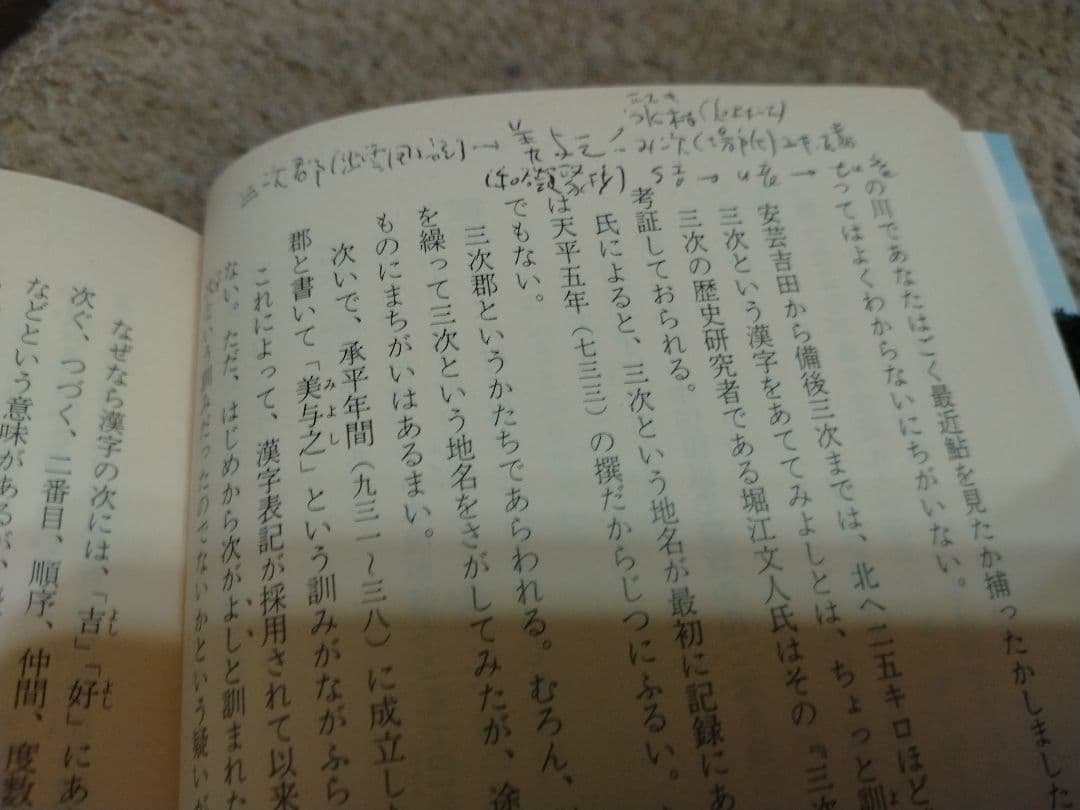 三次郡(出雲国
の川であなたはごく最近鮎を見たか捕ったかしました
ってはよくわからないにちがいない。
安芸吉田から備後三次までは、北へ二五キロほど
三次という漢字をあててみよしとは、ちょっと訓
三次の歴史研究者である堀江文人氏はその『三次
考証しておられる。
氏によると、三次という地名が最初に記録にあ
は天平五年（七三三）の撰だからじつにふるい。
でもない。
三次郡というかたちであらわれる。むろん、
を繰って三次という地名をさがしてみたが、途
ものにまちがいはあるまい。
次いで、承平年間（九三一〜三八）に成立し
郡と書いて「美与之」という訓みがながふら
みよし
これによって、漢字表記が採用されて以来
ない。ただ、はじめから次がよしと訓まれた
いう訓みだったのでないかという疑いが
なぜなら漢字の次には、「吉」「好」にあ
よし
よし
次ぐ、つづく、二番目、順序、仲間、度数
などという意味があるが、